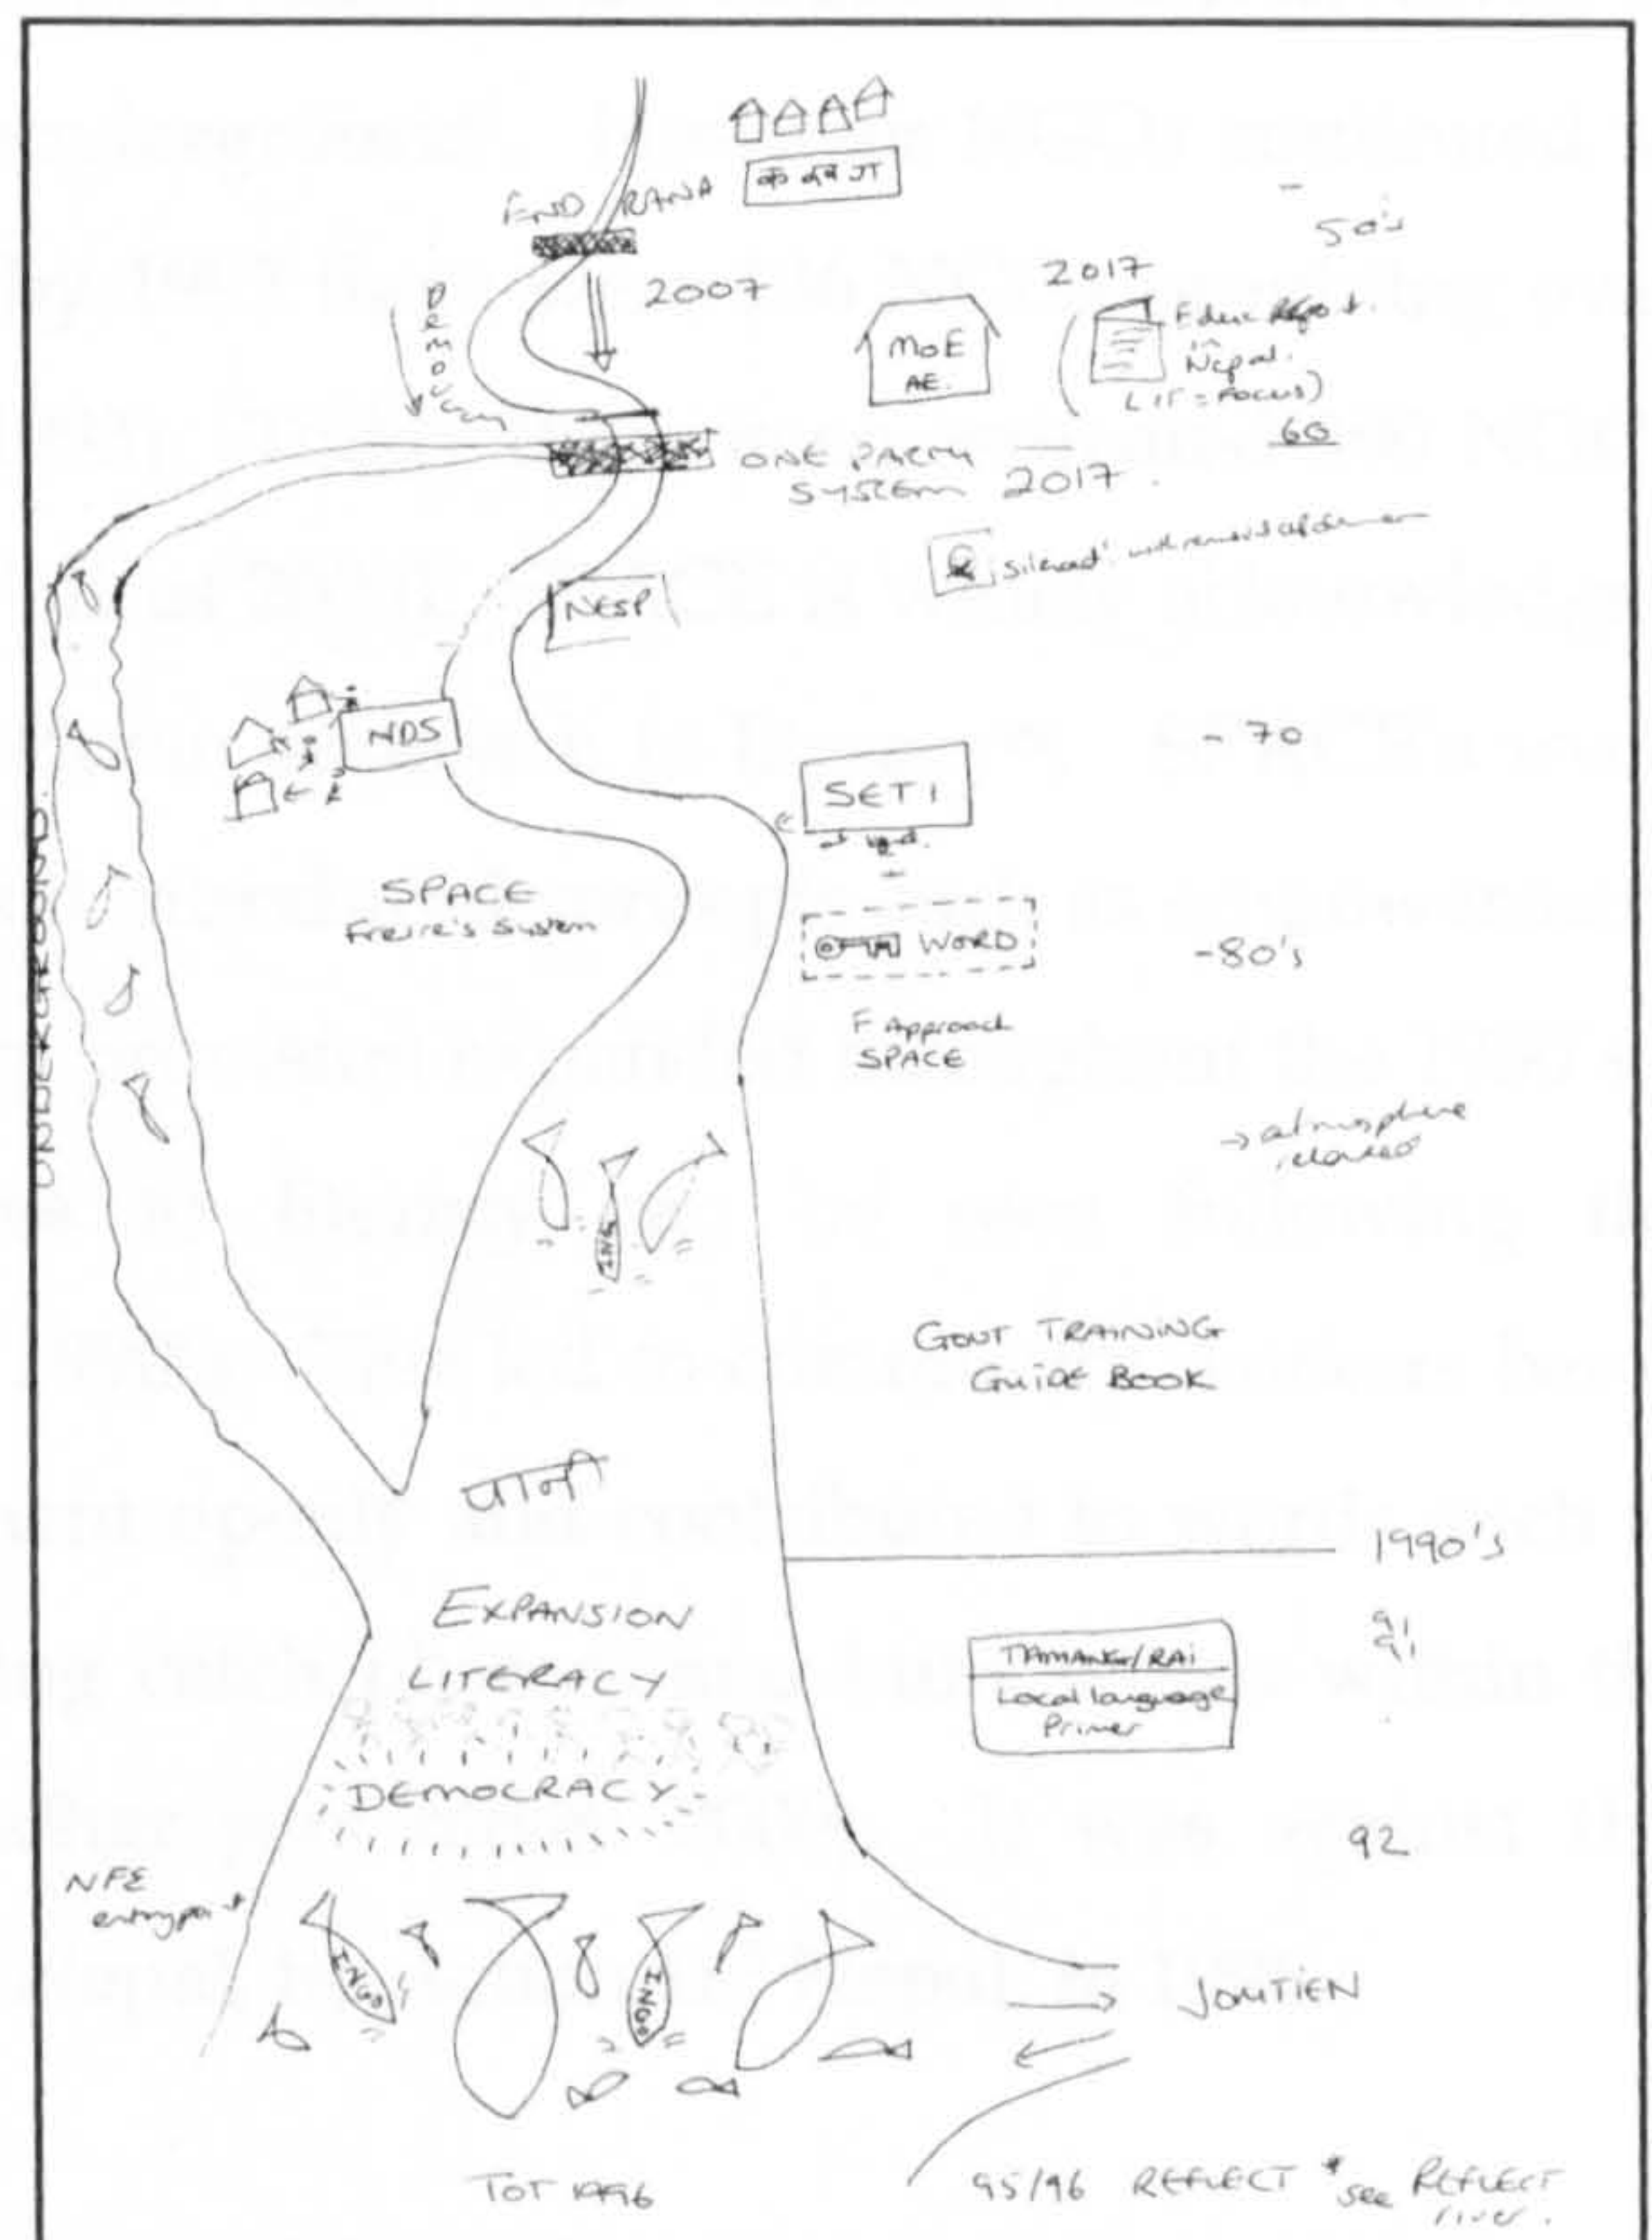 END RANA
क ख ग
50's
2007
2017
MoE
AE.
Educ
in
Nepal.
(LIT = FOCUS)
60
ONE PARTY
SYSTEM 2017
'Silenced' with
NESP
NDS
- 70
SETI
SPACE
Freire's System
WORD
- 80's
F Approach
SPACE
UNDERGROUND.
→ atmosphere
relaxed
ING
GOVT TRAINING
GUIDE BOOK
पानी
1990's
EXPANSION
LITERACY
91
91
TAMANG/RAI
Local language
Primer
DEMOCRACY
92
NFE
entry point
INGO
INGO
JOMTIEN
TOT 1996
95/96 REFLECT * see REFLECT
river.